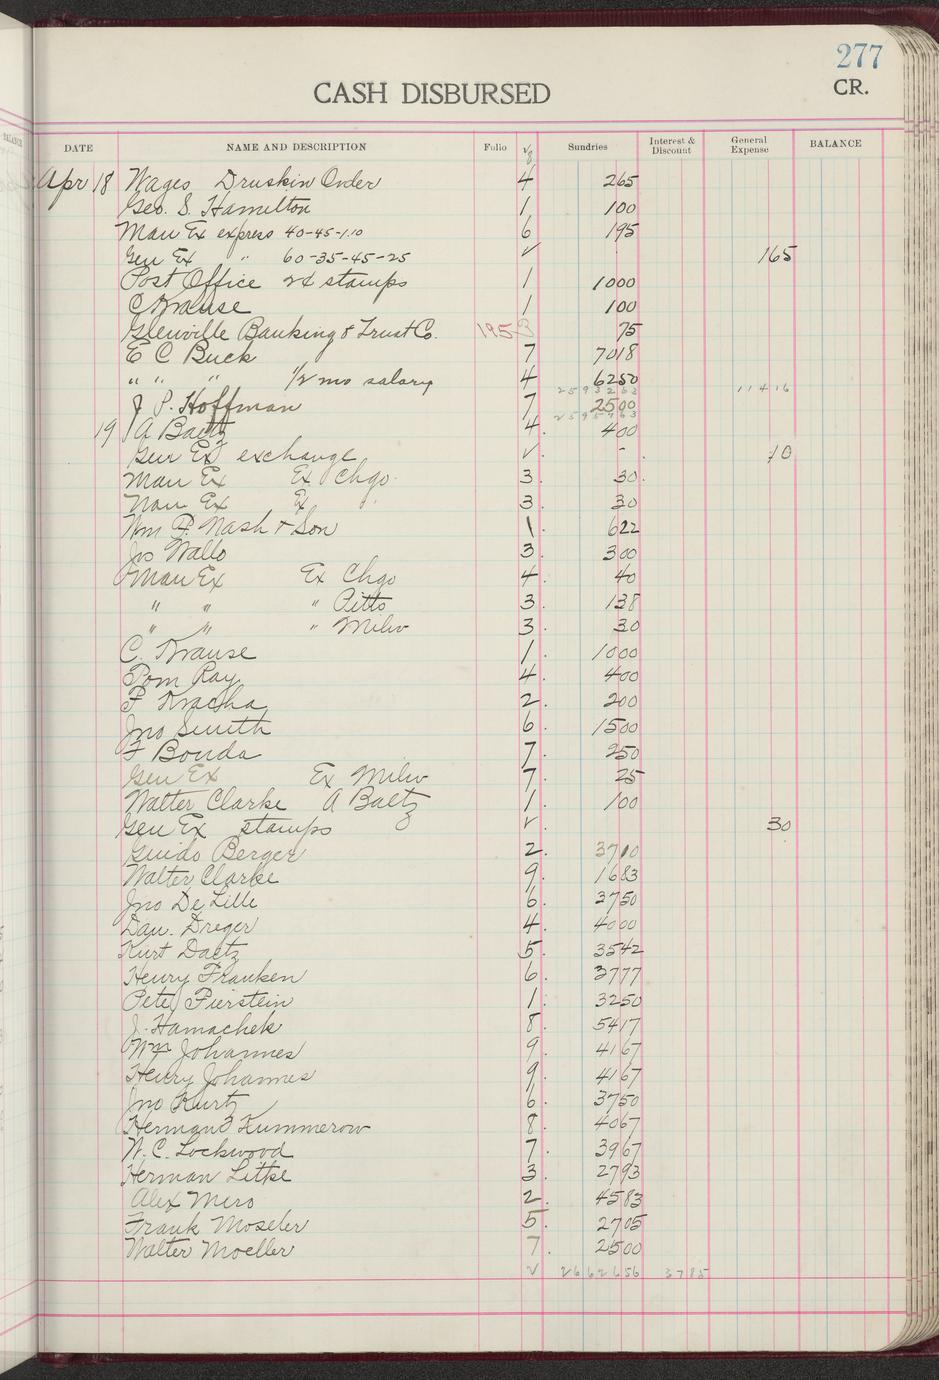 277
CASH DISBURSED CR.
DATE NAME AND DESCRIPTION Folio √8 Sundries Interest & Discount General Expense BALANCE
Apr 18 Wages Druskin Order 4 265
Geo. S. Hamilton 1 100
Man Ex express 40-45-1.10 6 195
Gen Ex " 60-35-45-25 ✓ 165
Post Office 2¢ stamps 1 1000
C Krause 1 100
Glenville Banking & Trust Co. 195 3 75
E C Buck 7 7018
" " " 1/2 mo salary 4 6250
2593263 11416
J P. Hoffman 7 2500
2595763
19 A Baetz 4. 400
Gen Ex exchange ✓. - 10
Man Ex Ex Chgo. 3. 30.
Man Ex Ex 3. 30
Wm P. Nash & Son 1. 622
Jos Wallo 3. 300
Man Ex Ex Chgo 4. 40
" " " Pitts 3. 138
" " " Milw 3. 30
C. Krause 1. 1000
Tom Ray 4. 400
F Kracha 2. 200
Jno Smith 6. 1500
F Bonda 7. 250
Gen Ex Ex Milw 7. 25
Walter Clarke A Baetz 1. 100
Gen Ex stamps ✓. 30
Guido Berger 2. 3710
Walter Clarke 9. 1683
Jno De Lille 6. 3750
Dan. Dreger 4. 4000
Kurt Daetz 5. 3542
Henry Franken 6. 3777
Pete Pierstein 1. 3250
J. Hamachek 8. 5417
Wm Johannes 9. 4167
Henry Johannes 9. 4167
Jno Kurtz 6. 3750
Herman Kummerow 8. 4067
W. C. Lockwood 7. 3967
Herman Litke 3. 2793
Alex Miro 2. 4583
Frank Moseler 5. 2705
Walter Moeller 7. 2500
✓ 2662656 3785